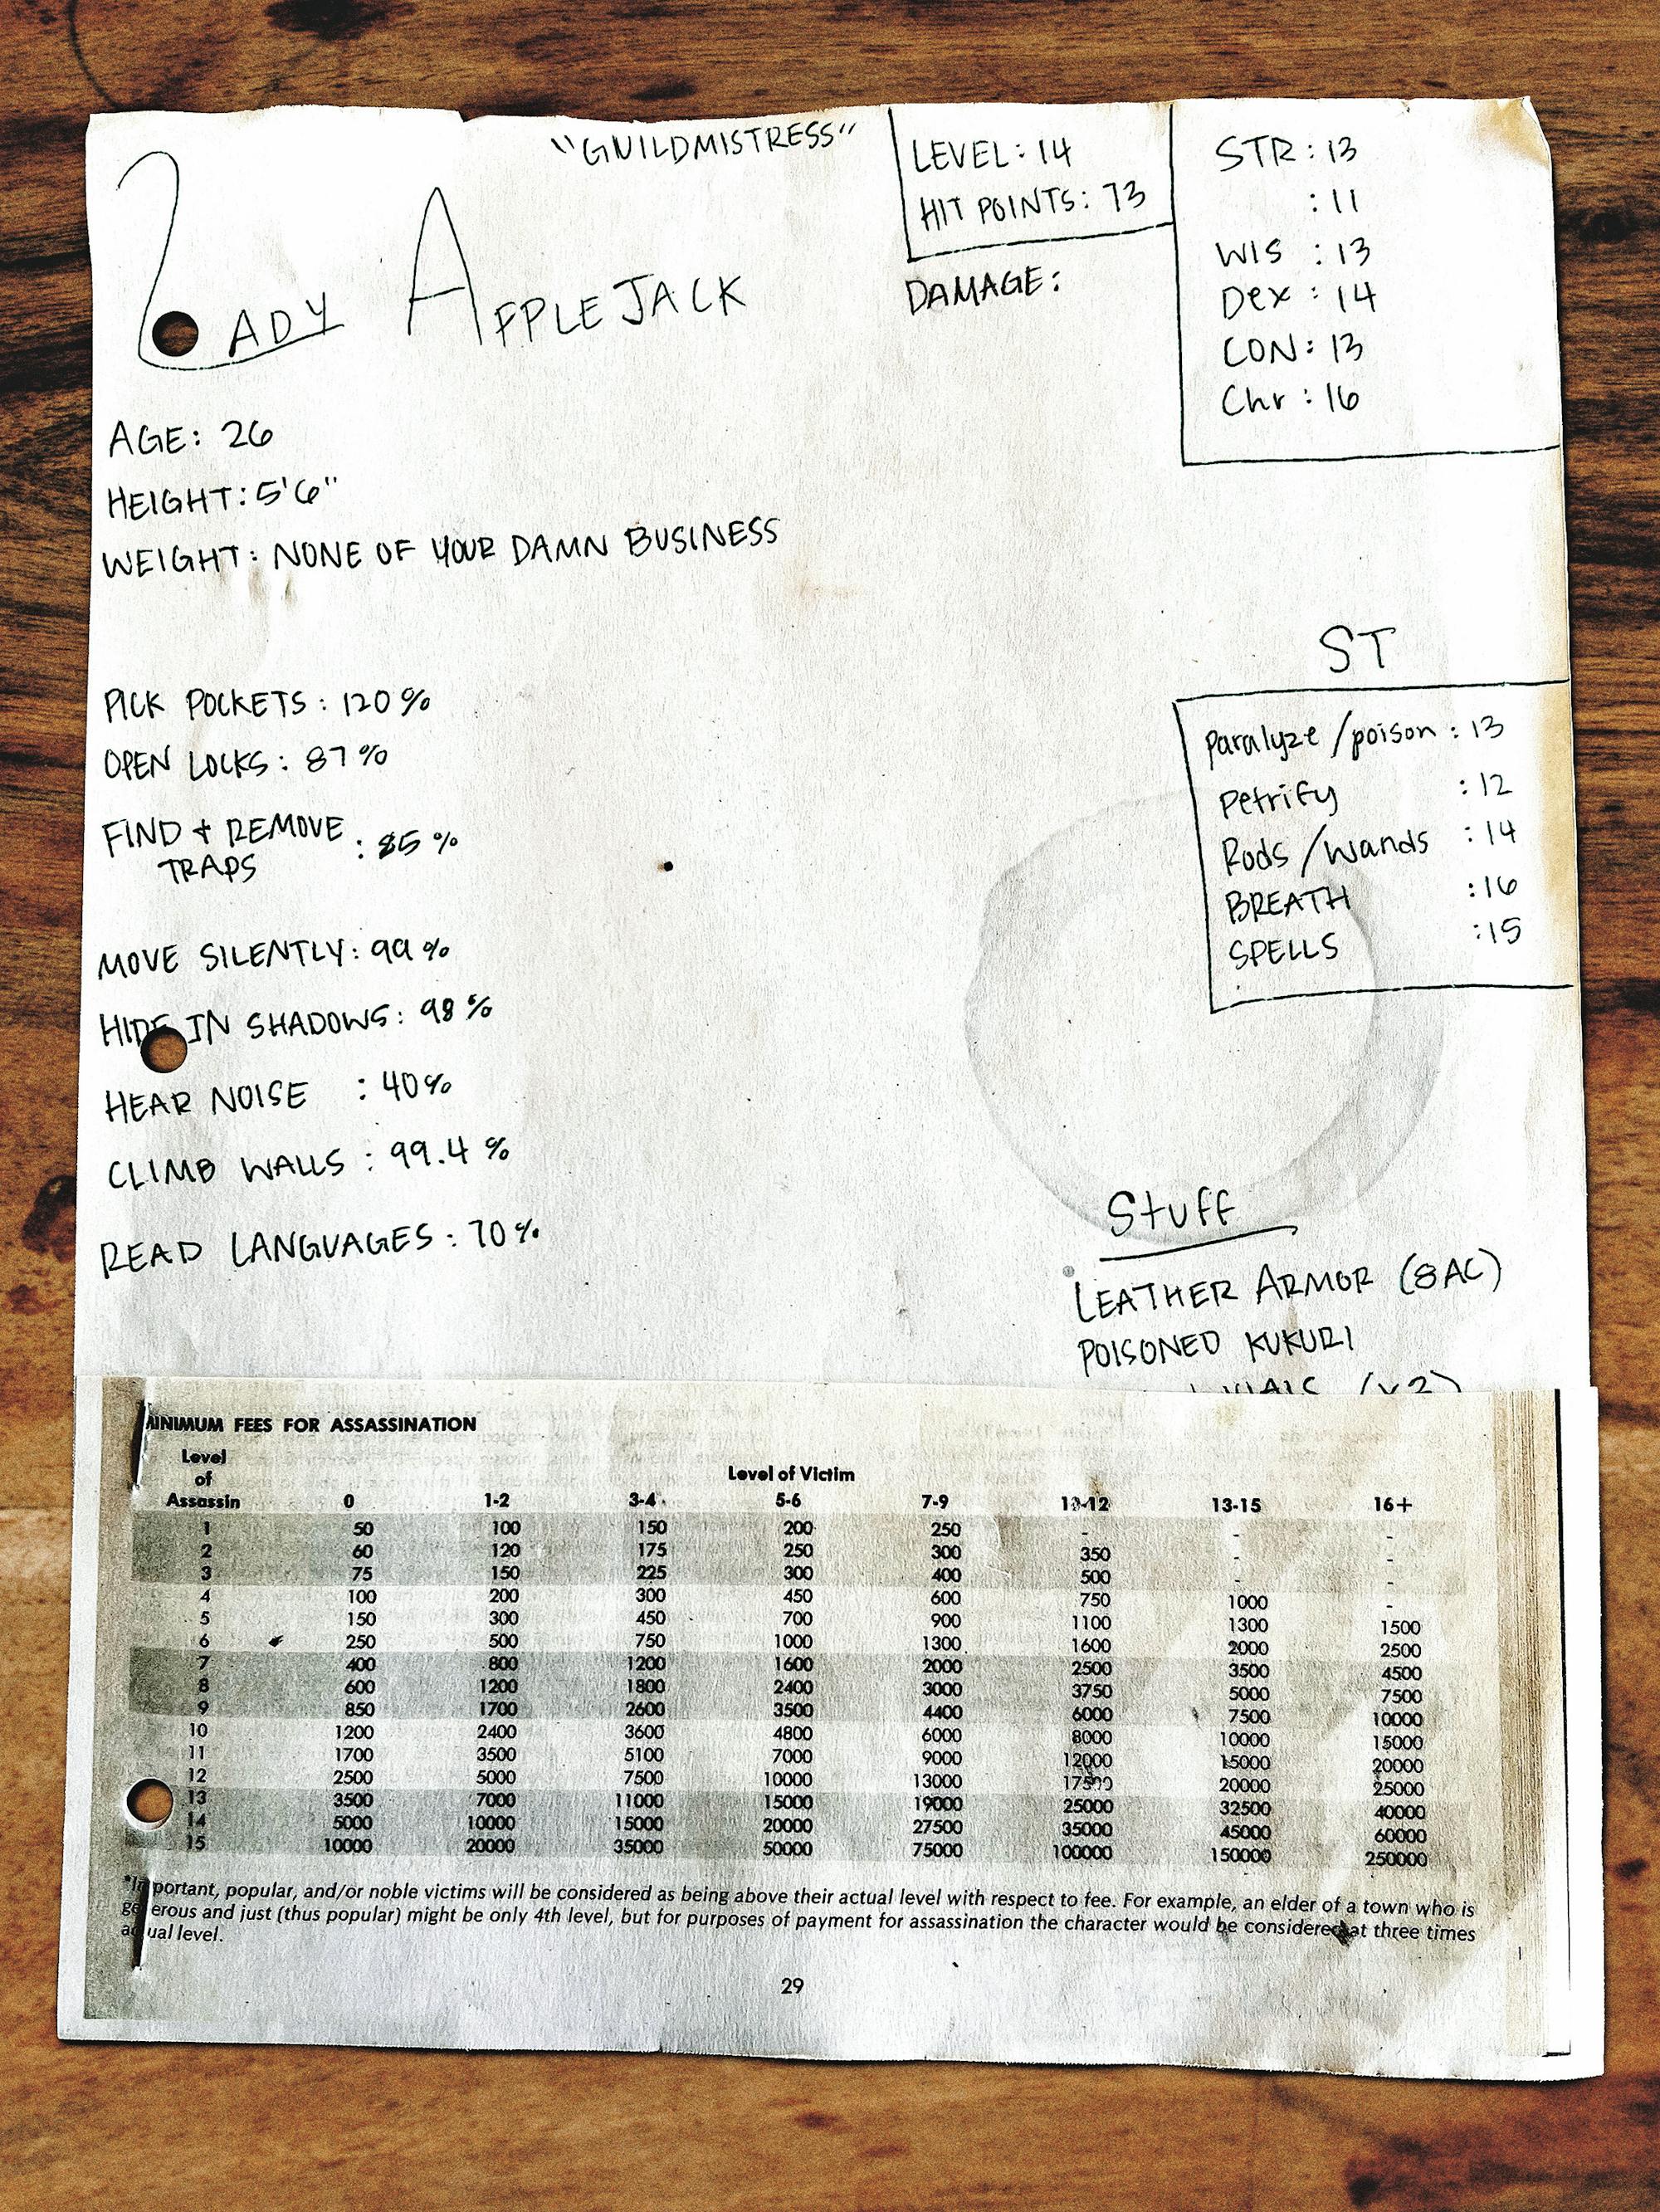 "GUILDMISTRESS"
LADY APPLEJACK
LEVEL: 14
HIT POINTS: 73
DAMAGE:
STR: 13
: 11
WIS : 13
Dex : 14
CON: 13
Chr : 16
AGE: 26
HEIGHT: 5'6"
WEIGHT: NONE OF YOUR DAMN BUSINESS
PICK POCKETS: 120%
OPEN LOCKS: 87%
FIND + REMOVE
TRAPS : 85%
MOVE SILENTLY: 99%
HIDE IN SHADOWS: 98%
HEAR NOISE : 40%
CLIMB WALLS : 99.4%
READ LANGUAGES: 70%
ST
Paralyze/poison : 13
Petrify : 12
Rods/wands : 14
BREATH : 16
SPELLS : 15
Stuff
LEATHER ARMOR (8AC)
POISONED KUKURI
VIALS (x2)
MINIMUM FEES FOR ASSASSINATION
Level
of
Assassin
Level of Victim
0 1-2 3-4 5-6 7-9 10-12 13-15 16+
1 50 100 150 200 250 - - -
2 60 120 175 250 300 350 - -
3 75 150 225 300 400 500 - -
4 100 200 300 450 600 750 1000 -
5 150 300 450 700 900 1100 1300 1500
6 250 500 750 1000 1300 1600 2000 2500
7 400 800 1200 1600 2000 2500 3500 4500
8 600 1200 1800 2400 3000 3750 5000 7500
9 850 1700 2600 3500 4400 6000 7500 10000
10 1200 2400 3600 4800 6000 8000 10000 15000
11 1700 3500 5100 7000 9000 12000 15000 20000
12 2500 5000 7500 10000 13000 17500 20000 25000
13 3500 7000 11000 15000 19000 25000 32500 40000
14 5000 10000 15000 20000 27500 35000 45000 60000
15 10000 20000 35000 50000 75000 100000 150000 250000
*Important, popular, and/or noble victims will be considered as being above their actual level with respect to fee. For example, an elder of a town who is
generous and just (thus popular) might be only 4th level, but for purposes of payment for assassination the character would be considered at three times
actual level.
29